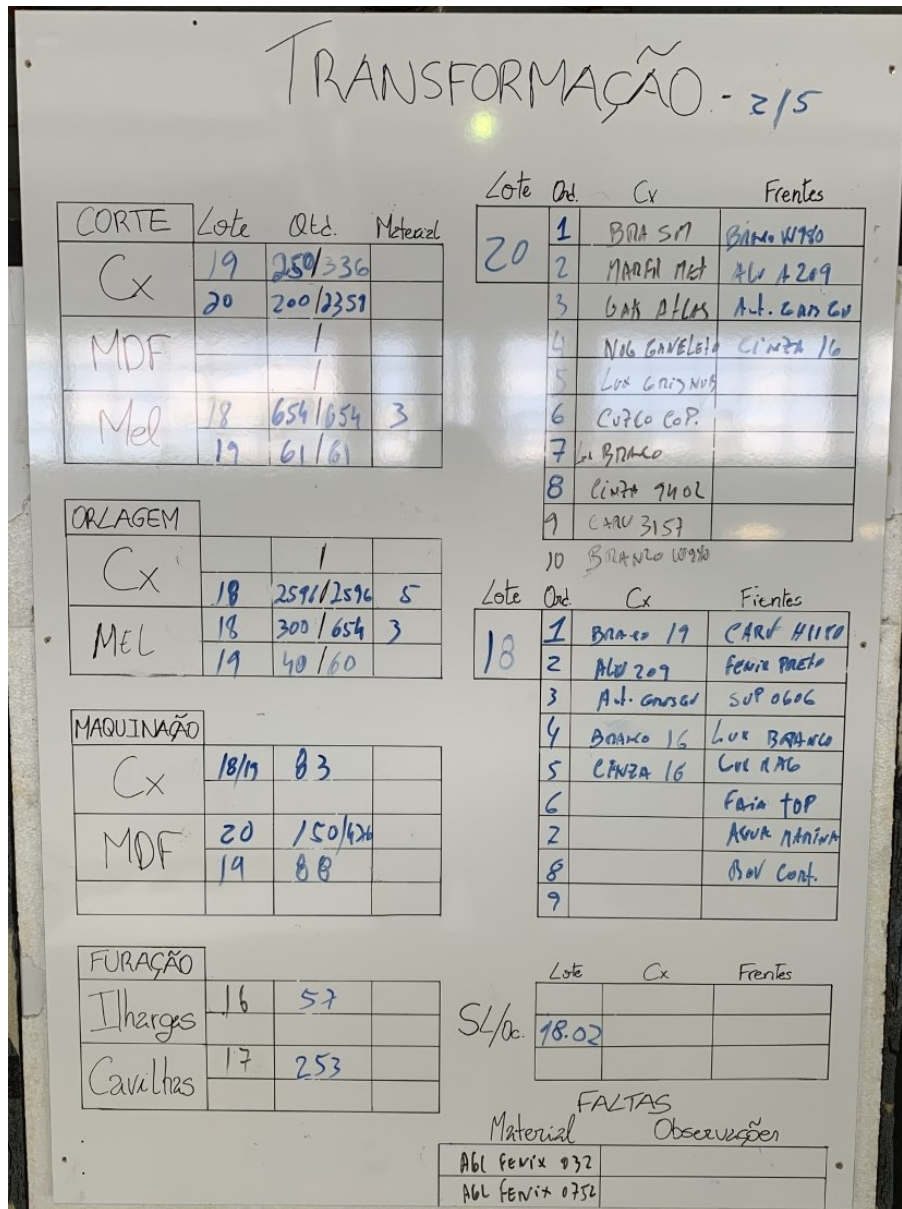 TRANSFORMAÇÃO - 2/5
CORTE Lote Qtd. Material
Cx 19 250/336
20 200/2351
MDF /
/
Mel 18 654/654 3
19 61/61
ORLAGEM
Cx /
18 2596/2596 5
MEL 18 300/654 3
19 40/60
MAQUINAÇÃO
Cx 18/19 83
MDF 20 150/426
19 88
FURAÇÃO
Ilhargas 16 57
Cavilhas 17 253
Lote Ord. Cx Frentes
20 1 BRA SM BRANCO W980
2 MARFIM MET ALU A209
3 GAR ATLAS
4 NOG CINZA 16
5 LUX
6 CUZCO COP.
7 BRANCO
8 CINZA 9402
9 CARV 3157
10 BRANCO W980
Lote Ord. Cx Frentes
18 1 BRANCO 19 CARV H1150
2 ALU 209 FENIX PRETO
3 SUP 0606
4 BRANCO 16 LUX BRANCO
5 CINZA 16
6 FAIA TOP
7 AGUA MARINA
8 Cont.
9
Lote Cx Frentes
SL/Oc. 18.02
FALTAS
Material Observações
AGL FENIX 032
AGL FENIX 0752